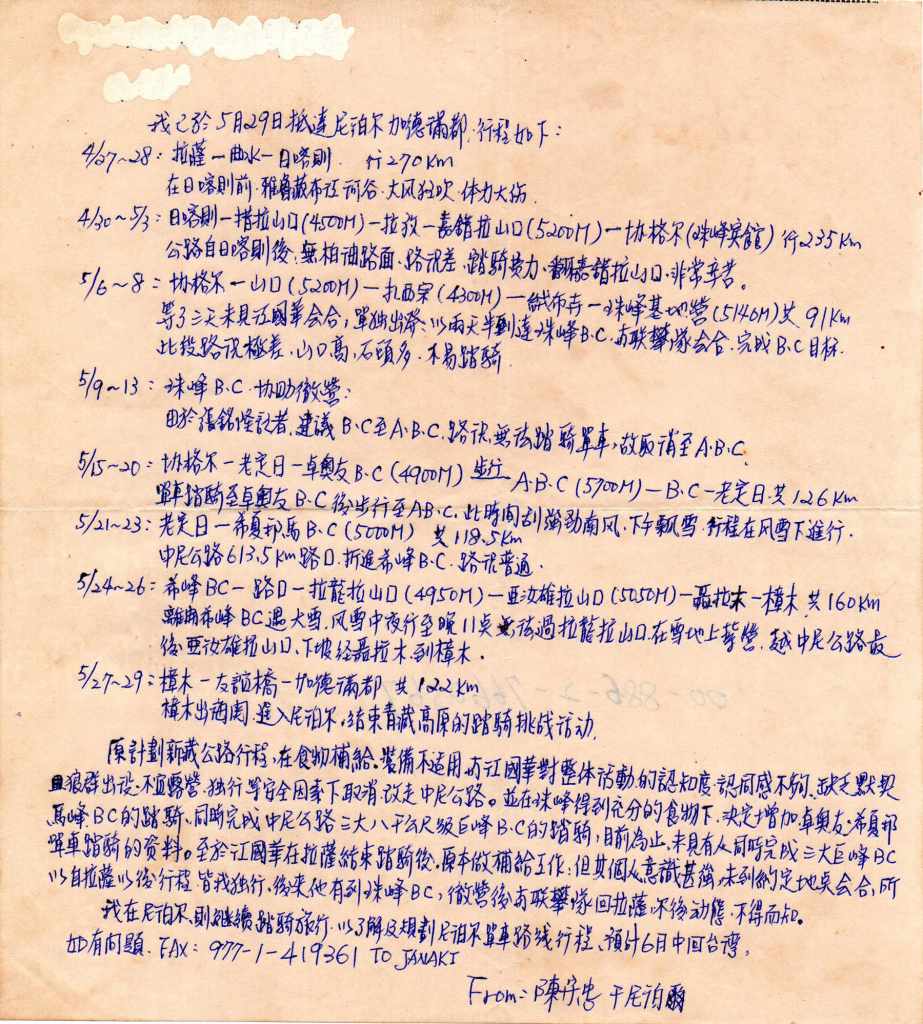 我已於5月29日抵達尼泊尔加德满都.行程如下:
4/27~28: 拉薩一曲水一日喀則. 行270Km
在日喀則前.雅鲁藏布江河谷.大风狂吹.体力大伤
4/30~5/3: 日喀則一措拉山口(4500M)一拉孜一嘉錯拉山口(5200M)一协格尔(珠峰宾館) 行235Km
公路自日喀則後.無柏油路面.路況差、踏騎费力、翻嘉錯拉山口.非常辛苦。
5/6~8: 协格尔一山口(5200M)一扎西宗(4300M)一絨布寺一珠峰基地營(5140M)共91Km
等了三天未見江國華会合,單独出發.以兩天半到達珠峰B.C.与联攀隊会合.完成B.C目标.
此段路況極差.山口高,石頭多.不易踏騎.
5/9~13: 珠峰B.C.协助撤營:
由於張銘隆記者.建議B.C至A.B.C.路況.無法踏騎單車,故取消至A.B.C.
5/15~20: 协格尔一老定日一卓奧友B.C(4900M) 步行 A.B.C(5700M)一B.C一老定日.共126Km
單車踏騎至卓奧友B.C後步行至ABC.此時间刮强勁南风.下午飄雪.行程在风雪下進行.
5/21~23: 老定日一希夏邦馬B.C(5000M) 共118.5Km
中尼公路613.5Km路口.折進希峰B.C.路況普通.
5/24~26: 希峰BC一路口一拉龍拉山口(4950M)一亞汝雄拉山口(5050M)一聂拉木一樟木 共160Km
離開希峰BC遇大雪.风雪中夜行至晚11点无法過拉龍拉山口.在雪地上紮營.越中尼公路最
後亞汝雄拉山口、下坡经聂拉木到樟木.
5/27~29: 樟木一友誼橋一加德满都 共122Km
樟木出海関.進入尼泊尔,结束青藏高原的踏騎挑战活动.
原計劃新藏公路行程,在食物補給.裝備不适用.与江國華對整体活動的認知度.認同感不夠.缺乏默契
狼群出没.不宜露營.独行等安全因素下取消.改走中尼公路。並在珠峰得到充分的食物下.决定增加卓奧友.希夏邦
馬峰BC的踏騎、同時完成中尼公路三大八千公尺级巨峰B.C的踏騎,目前為止.未見有人同時完成三大巨峰BC
單車踏騎的资料。至於江國華在拉薩结束踏騎後.原本做補給工作;但其個人意識甚強.未到約定地点会合,所
以自拉薩以後行程.皆我独行.後來他有到珠峰BC,撤營後与联攀隊回拉薩.尔後动態.不得而知.
我在尼泊尔.則继續踏騎旅行.以了解及規劃尼泊尔單車路线行程、預計6月中回台湾.
如有问題. FAX: 977-1-419361 TO JANAKI
From: 陳 忠 于尼泊爾